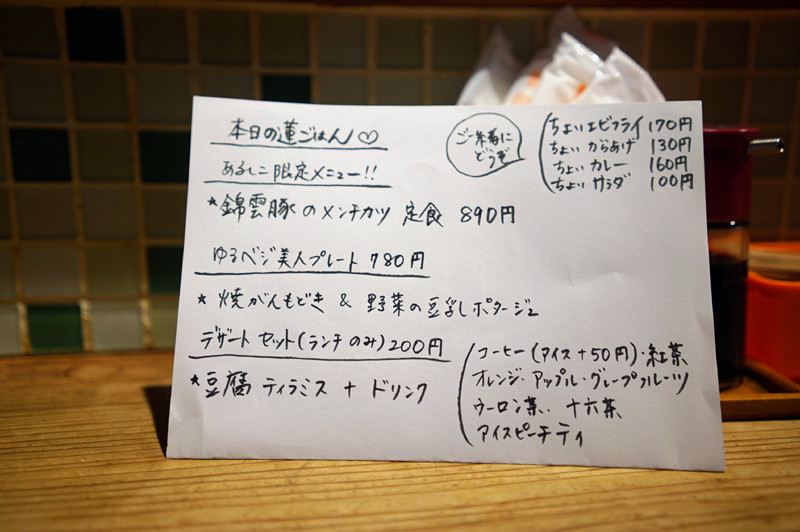 本日の蓮ごはん♡
あるしこ限定メニュー!!
★錦雲豚のメンチカツ 定食 890円
ご一緒に
どうぞ
ちょいエビフライ 170円
ちょい からあげ 130円
ちょい カレー 160円
ちょい サラダ 100円
ゆるベジ美人プレート 780円
★ 焼がんもどき & 野菜の豆乳ポタージュ
デザート セット(ランチのみ)200円
★豆腐 ティラミス + ドリンク
コーヒー(アイス+50円)・紅茶
オレンジ・アップル・グレープフルーツ
ウーロン茶・十六茶
アイスピーチティ